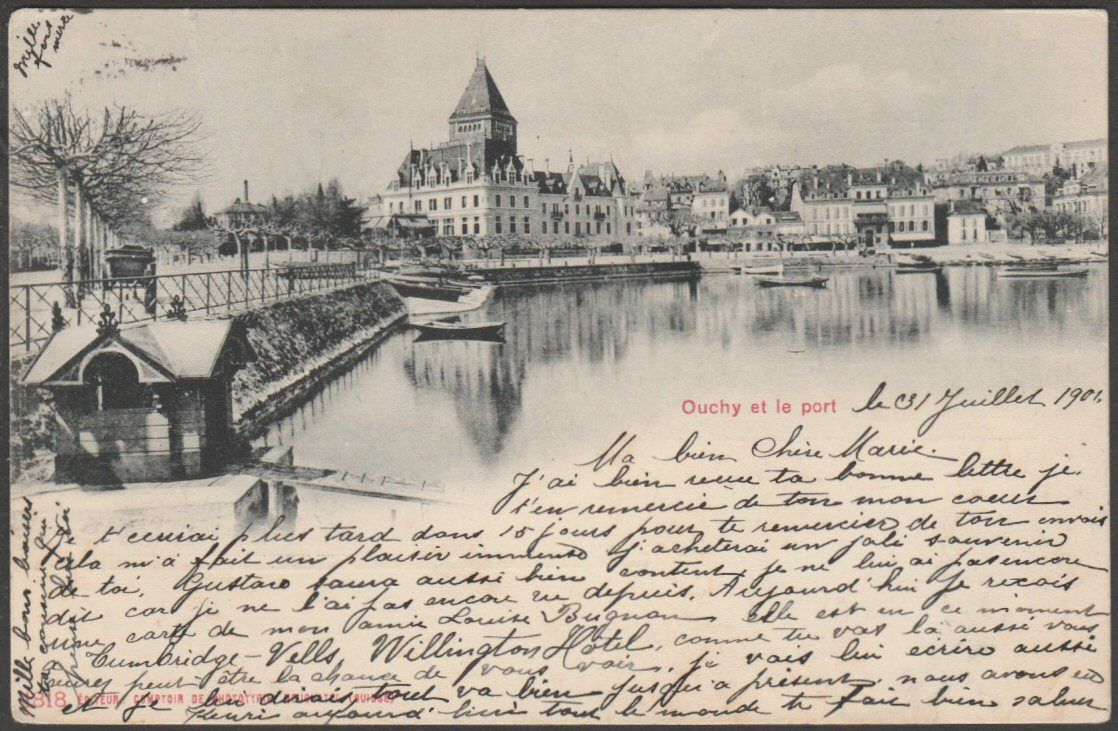 Mille
fois
merci
Ouchy et le port
le 31 Juillet 1901.
Ma bien Chère Marie.
J'ai bien reçue ta bonne lettre je
t'en remercie de ton mon coeur
t'ecrirai plus tard dans 15 jours pour te remercier de ton envois
cela m'a fait un plaisir immense j'acheterai un joli souvenir
de toi, Gustave saura aussi bien content, je ne lui ai pas encore
dit car je ne l'ai pas encore vu depuis. Aujourd'hui je reçois
une carte de mon amie Louise Bugnon elle est en ce moment
Tumbridge-Vells, Willington Hôtel, comme tu vas là aussi vous
aurez peut être la chance de vous voir, je vais lui écrire aussi
et je lui dirais tout va bien jusqu'a présent, nous avons eu
Henri aujourd'hui tout le monde te fait bien saluer
Mille bons baisers
ta cousine qui
818 ÉDITEUR: COMPTOIR DE PHOTOTYPIE, NEUCHATEL (SUISSE)